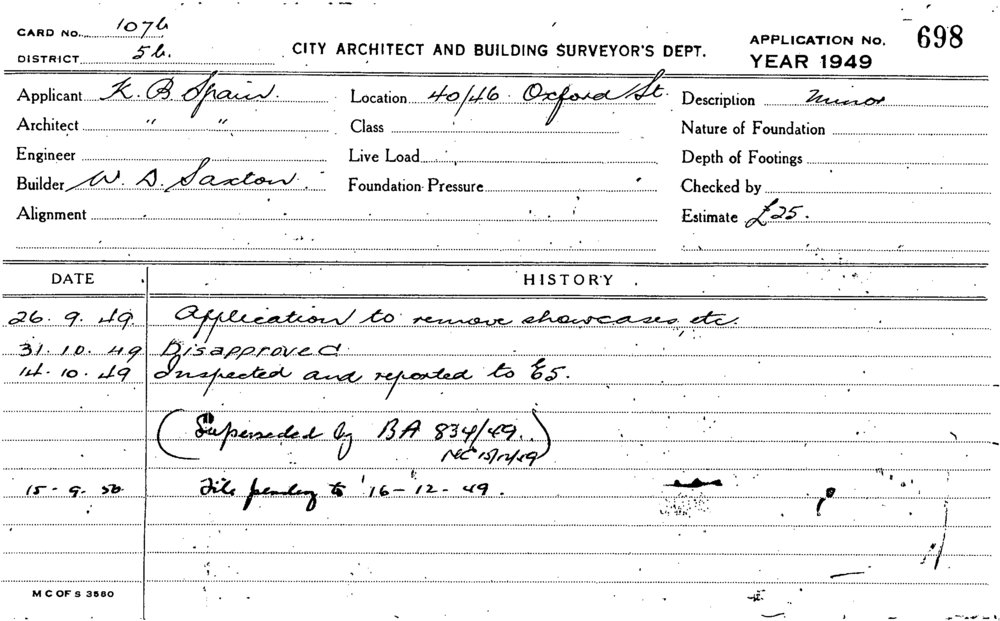 CARD No. 107b
DISTRICT 5b.
CITY ARCHITECT AND BUILDING SURVEYOR'S DEPT.
APPLICATION No. 698
YEAR 1949
Applicant K. B. Spain.
Location 40/46 Oxford St.
Description Minor
Architect " "
Class
Nature of Foundation
Engineer
Live Load
Depth of Footings
Builder W. D. Saxton.
Foundation Pressure
Checked by
Alignment
Estimate £25.
DATE HISTORY
26. 9. 49. Application to remove showcases, etc.
31. 10. 49 Disapproved
14. 10. 49 Inspected and reported to E5.
(Superseded by BA 834/49.
15/12/49)
15-9-50 File pending to 16-12-49.
M C OF S 3580